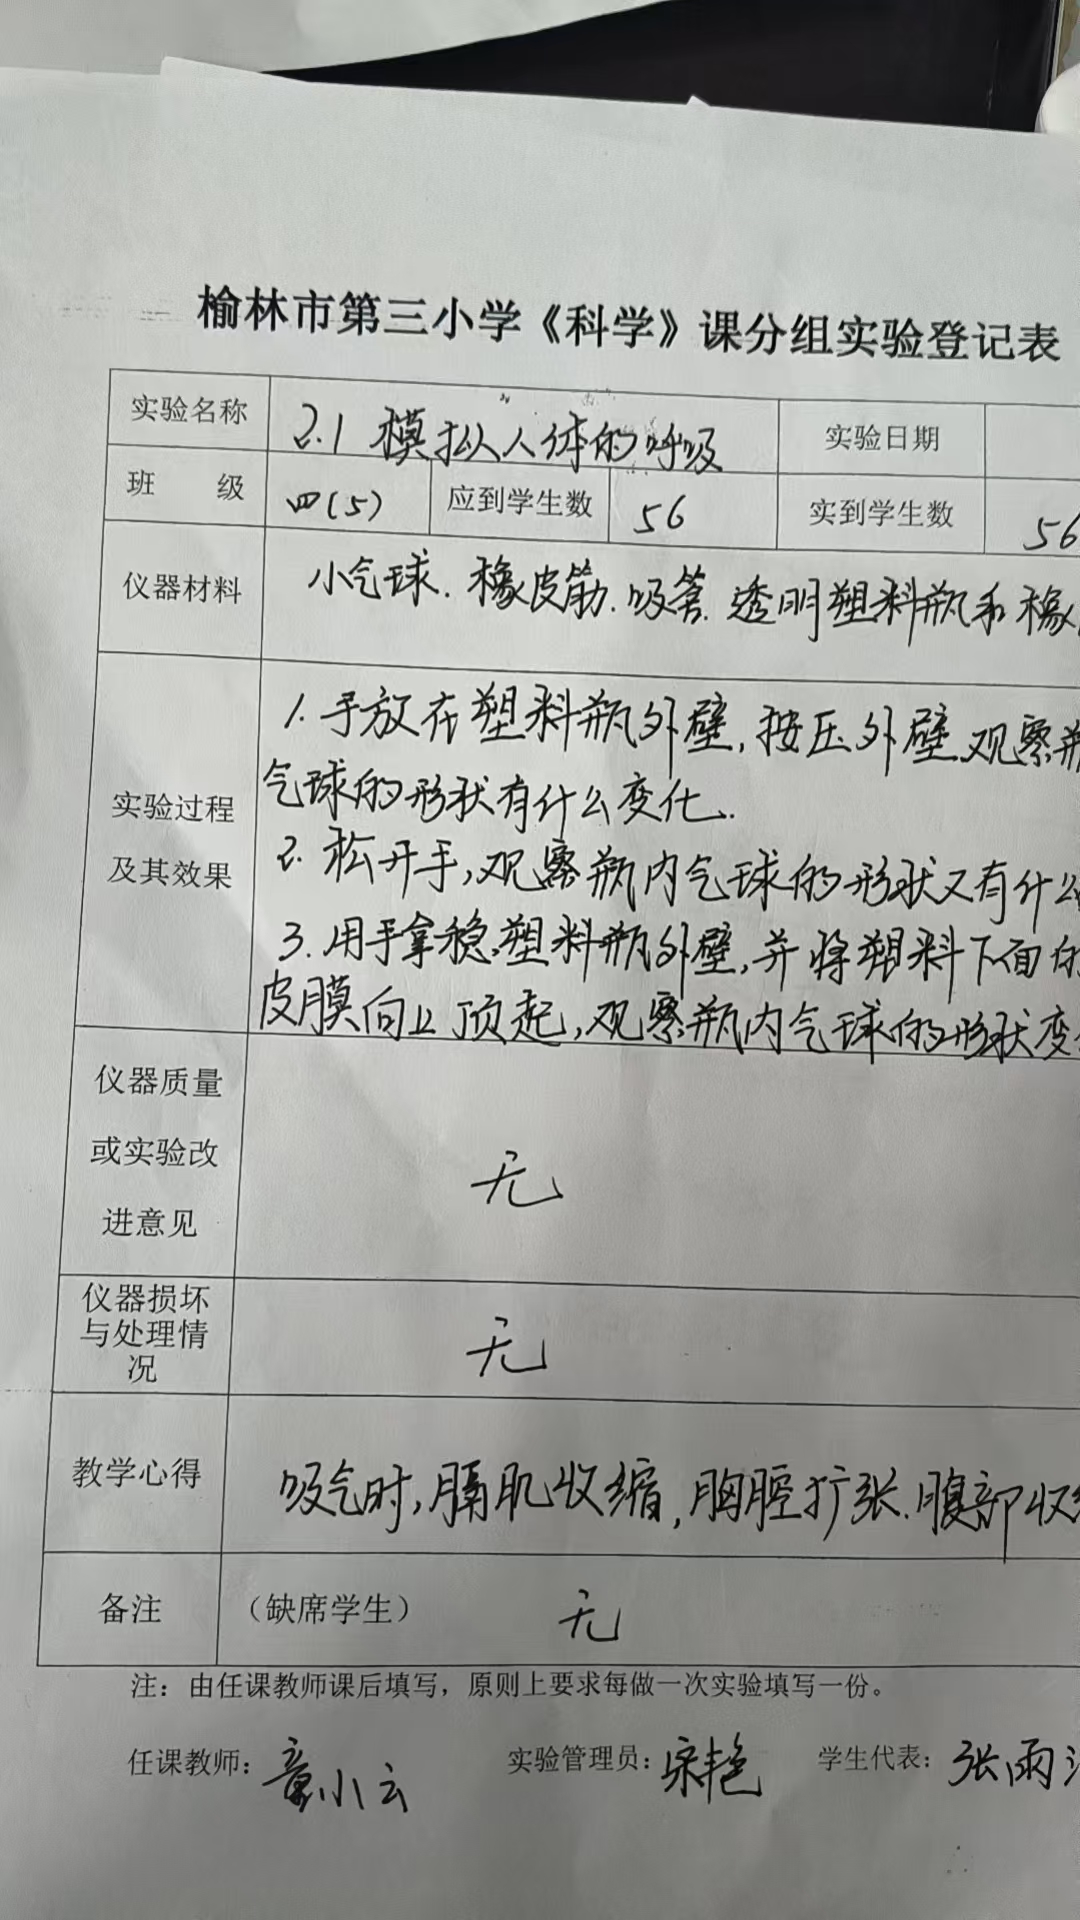 榆林市第三小学《科学》课分组实验登记表
实验名称 2.1 模拟人体的呼吸 实验日期
班 级 四(5) 应到学生数 56 实到学生数 56
仪器材料 小气球. 橡皮筋. 吸管. 透明塑料瓶和橡
1. 手放在塑料瓶外壁, 按压外壁, 观察瓶
气球的形状有什么变化.
实验过程
及其效果
2. 松开手, 观察瓶内气球的形状又有什么
3. 用手拿稳塑料瓶外壁, 并将塑料下面的
皮膜向上顶起, 观察瓶内气球的形状变
仪器质量
或实验改
进意见
无
仪器损坏
与处理情
况
无
教学心得 吸气时, 膈肌收缩, 胸腔扩张. 腹部收缩
备注 （缺席学生） 无
注：由任课教师课后填写，原则上要求每做一次实验填写一份。
任课教师: 童小云 实验管理员: 宋艳 学生代表: 张雨